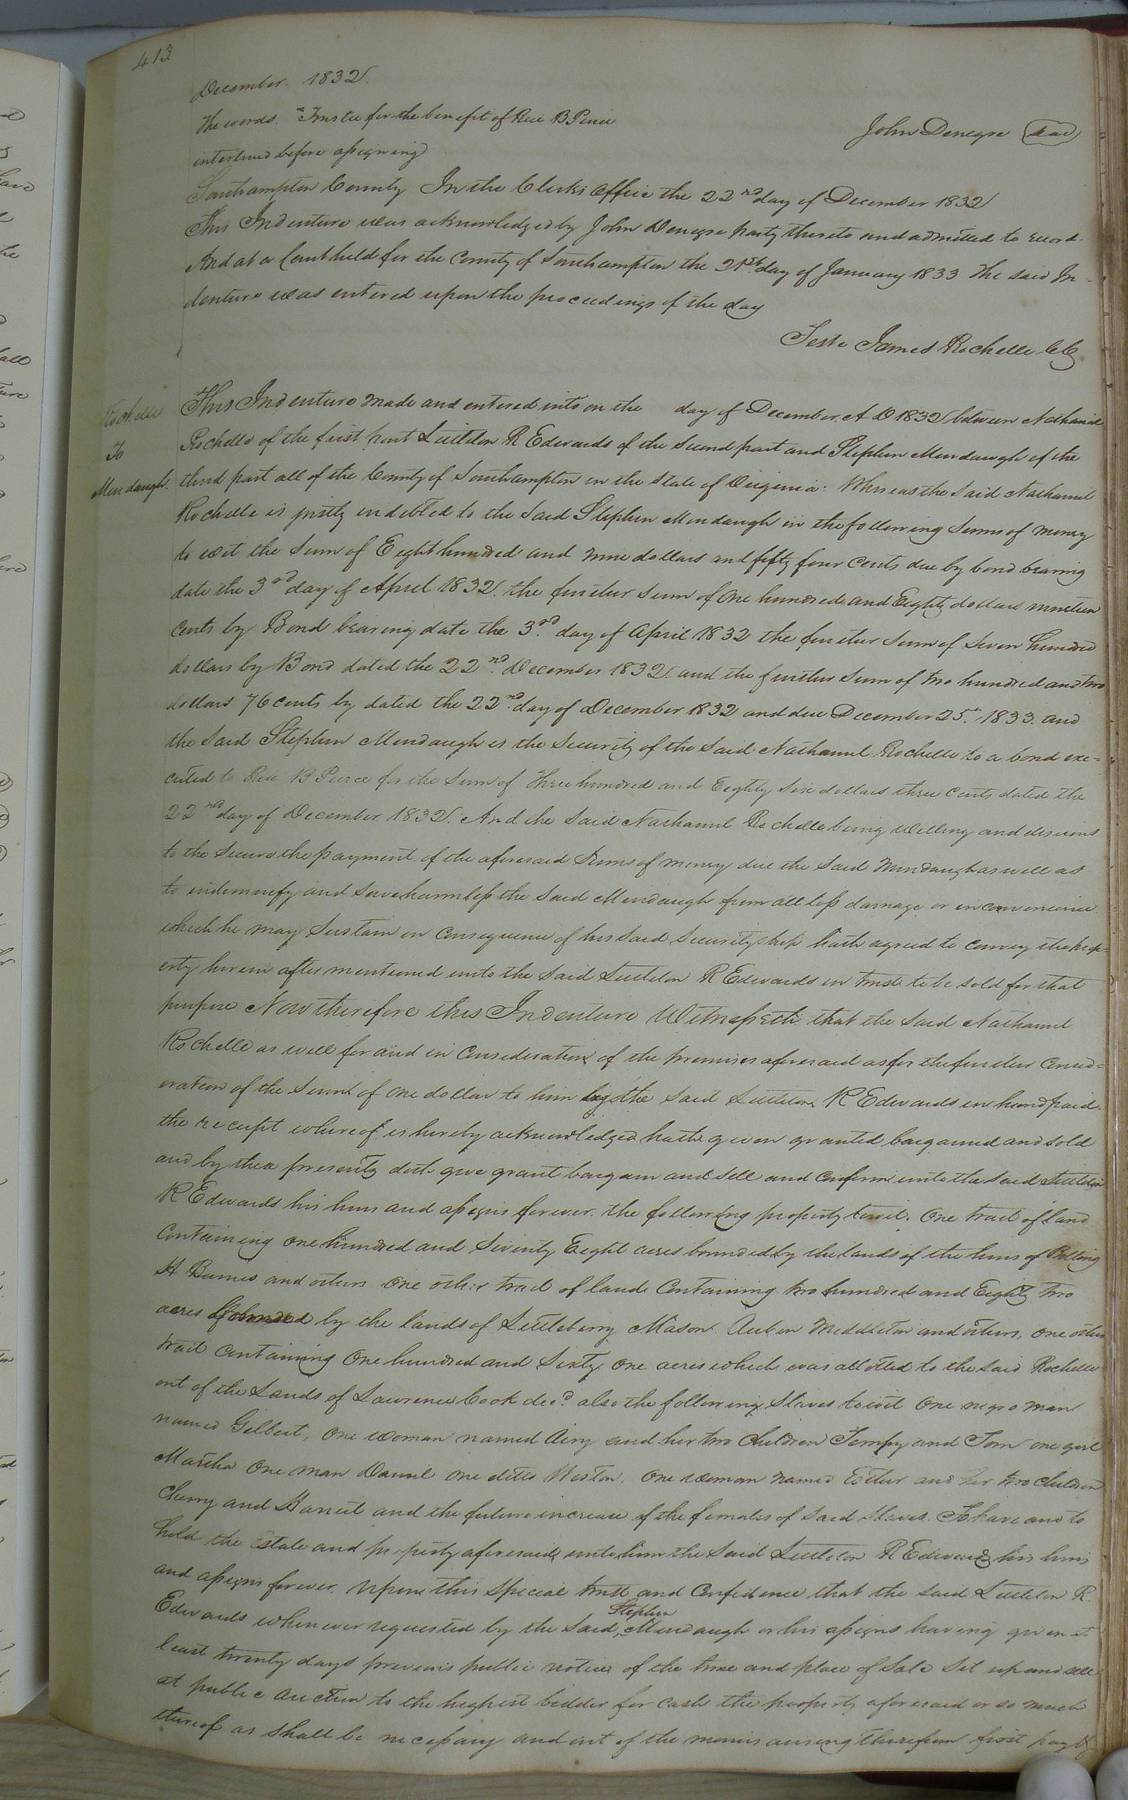 413
December. 1832
The words. "Trustee for the benefit of Rice B Pierce
interlined before assigning
John Denegre Seal
Southampton County In the Clerks office the 22nd day of December 1832
This Indenture was acknowledged by John Denegre party thereto and admitted to record.
And at a Court held for the County of Southampton the 21st day of January 1833 The said In-
denture was entered upon the proceedings of the day
Teste James Rochelle CC
Rochelle
To
Mundaugh
This Indenture made and entered into on the day of December A D 1832 between Nathaniel
Rochelle of the first part Littleton R Edwards of the Second part and Stephen Mundaugh of the
third part all of the County of Southampton in the State of Virginia: Whereas the said Nathaniel
Rochelle is justly indebted to the Said Stephen Mundaugh in the following Sums of money
to wit the Sum of Eight hundred and nine dollars and fifty four Cents due by bond bearing
date the 3rd day of April 1832. the further Sum of One hundred and Eighty dollars nineteen
Cents by Bond bearing date the 3rd. day of April 1832 the further Sum of Seven hundred
dollars by Bond dated the 22nd December 1832 and the further Sum of two hundred and two
dollars 76 cents by dated the 22nd day of December 1832 and due December 25th 1833. and
the Said Stephen Mundaugh is the Security of the Said Nathaniel Rochelle to a bond exe-
cuted to Rice B Pierce for the Sum of Three hundred and Eighty Six dollars three Cents dated the
22nd day of December 1832. And the Said Nathaniel Rochelle being willing and desirous
to the Secure the payment of the aforesaid Sums of money due the Said Mundaugh as well as
to indemnify and Save harmless the Said Mundaugh from all loss damage or inconvenience
which he may Sustain in Consequence of his Said Securityship hath agreed to convey the prop-
erty herein after mentioned unto the Said Littleton R Edwards in trust to be sold for that
purpose Now therefore this Indenture Witnesseth that the Said Nathaniel
Rochelle as well for and in Consideration of the premises aforesaid as for the further Consid-
eration of the Sum of One dollar to him by the Said Littleton R Edwards in hand paid.
the receipt whereof is hereby acknowledged hath given granted bargained and sold
and by these presents doth give grant bargain and Sell and Confirm unto the Said Littleton
R Edwards his heirs and assigns forever. the following property towit. One tract of land
Containing one hundred and Seventy Eight acres bounded by the lands of the heirs of Bolling
H Barnes and others One other tract of land Containing two hundred and Eighty two
acres bounded by the lands of Littleberry Mason Auben Middleton and others, one other
tract Containing One hundred and Sixty One acres which was allotted to the Said Rochelle
out of the Lands of Lawrence Cook decd. also the following Slaves towit One negro man
named Gilbert, One woman named Airy and her two Children Tempy and Tom one girl
Martha One man Daniel One ditto Weston. One woman named Esther and her two Children
Cherry and Harriet and the future increase of the females of Said Slaves. To have and to
hold the Estate and property aforesaid unto him the Said Littleton R Edwards his heirs
and assigns forever. Upon this Special trust and Confidence that the Said Littleton R.
Edwards whenever requested by the Said Stephen Mundaugh or his assigns having given at
least twenty days previous public notice of the time and place of Sale Set up and sell
at public auction to the highest bidder for Cash the property aforesaid or so much
thereof as Shall be necessary and out of the monies arising therefrom first pay to